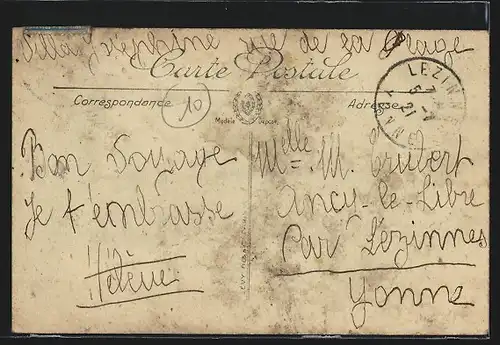 Villa Joséphine rue de la Plage
Carte Postale
Correspondance
10
Adresse
Modèle Déposé
LEZINNES
7 -7
21
Bon Voyage
Je t'embrasse
Hélène
Melle M. Truvert
Ancy-le-Libre
Par Lézinnes
Yonne